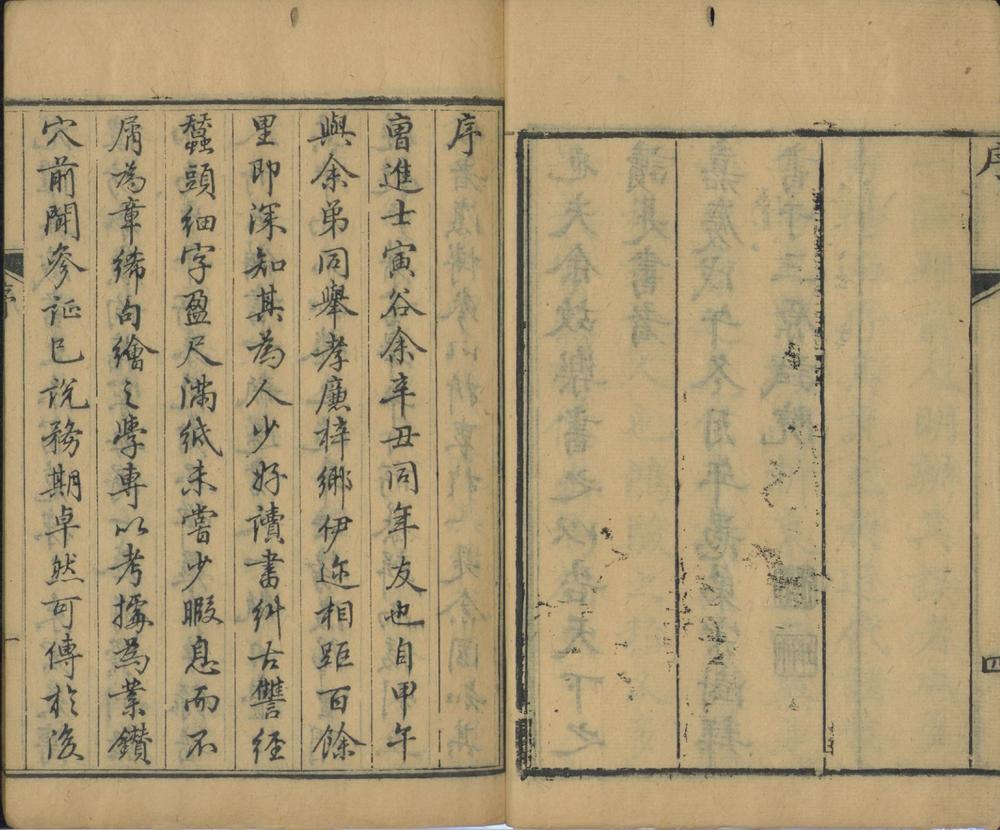 序
四
序
曺進士寅谷余辛丑同年友也自甲午
與余弟同舉孝廉梓鄉伊邇相距百餘
里即深知其為人少好讀書糾古讐經
蠶頭細字盈尺滿紙未嘗少暇息而不
屑為章絺句繪之學專以考據為業鑚
穴前聞參証已說務期卓然可傳於後
序
一